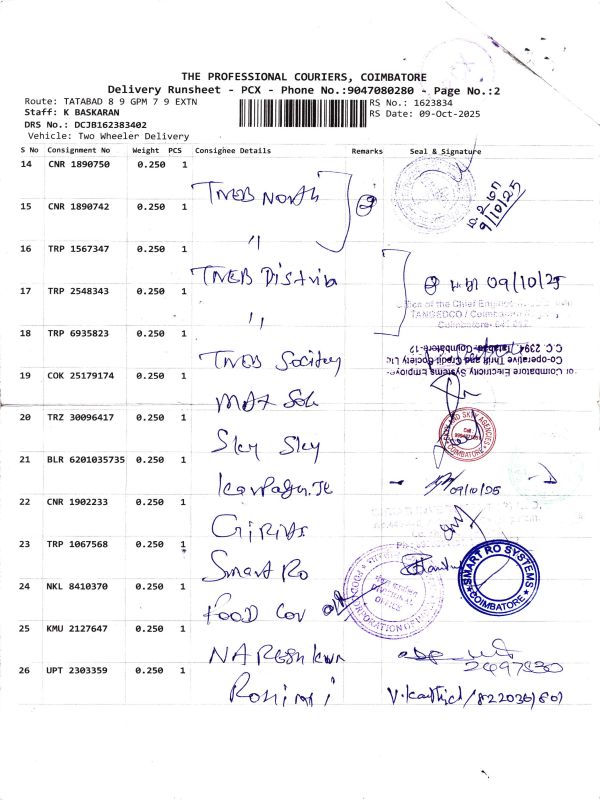 THE PROFESSIONAL COURIERS, COIMBATORE
Delivery Runsheet - PCX - Phone No.:9047080280 - Page No.:2
Route: TATABAD 8 9 GPM 7 9 EXTN
RS No.: 1623834
Staff: K BASKARAN
RS Date: 09-Oct-2025
DRS No.: DCJB162383402
Vehicle: Two Wheeler Delivery
S No Consignment No Weight PCS Consignee Details Remarks Seal & Signature
14 CNR 1890750 0.250 1 TNEB North
9/10/25
15 CNR 1890742 0.250 1 "
16 TRP 1567347 0.250 1 TNEB Distrib
09/10/25
17 TRP 2548343 0.250 1 "
TANGEDCO / Coimbatore
18 TRP 6935823 0.250 1 TNEB Society
C.C. 2394, Tatabad, Coimbatore-12
Co-operative Thrift and Credit Society Ltd
Coimbatore Electricity Systems Employe
19 COK 25179174 0.250 1
20 TRZ 30096417 0.250 1 Sky Sky
SKY AGENCIES
COIMBATORE
21 BLR 6201035735 0.250 1
09/10/25
22 CNR 1902233 0.250 1
23 TRP 1067568 0.250 1 Smart Ro
SMART RO SYSTEMS
COIMBATORE
24 NKL 8410370 0.250 1 FOOD Cor
DIVISIONAL
OFFICE
25 KMU 2127647 0.250 1 NARESH kum
26 UPT 2303359 0.250 1